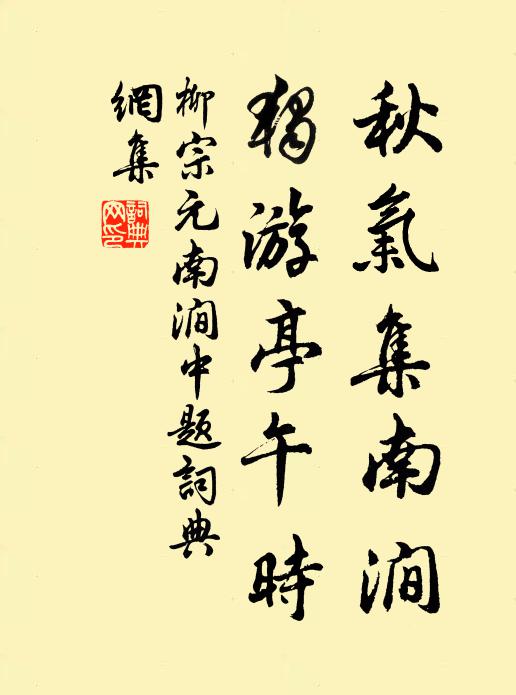 秋氣集南澗
獨游亭午時
柳宗元南澗中題詞典
網集
詞典網印